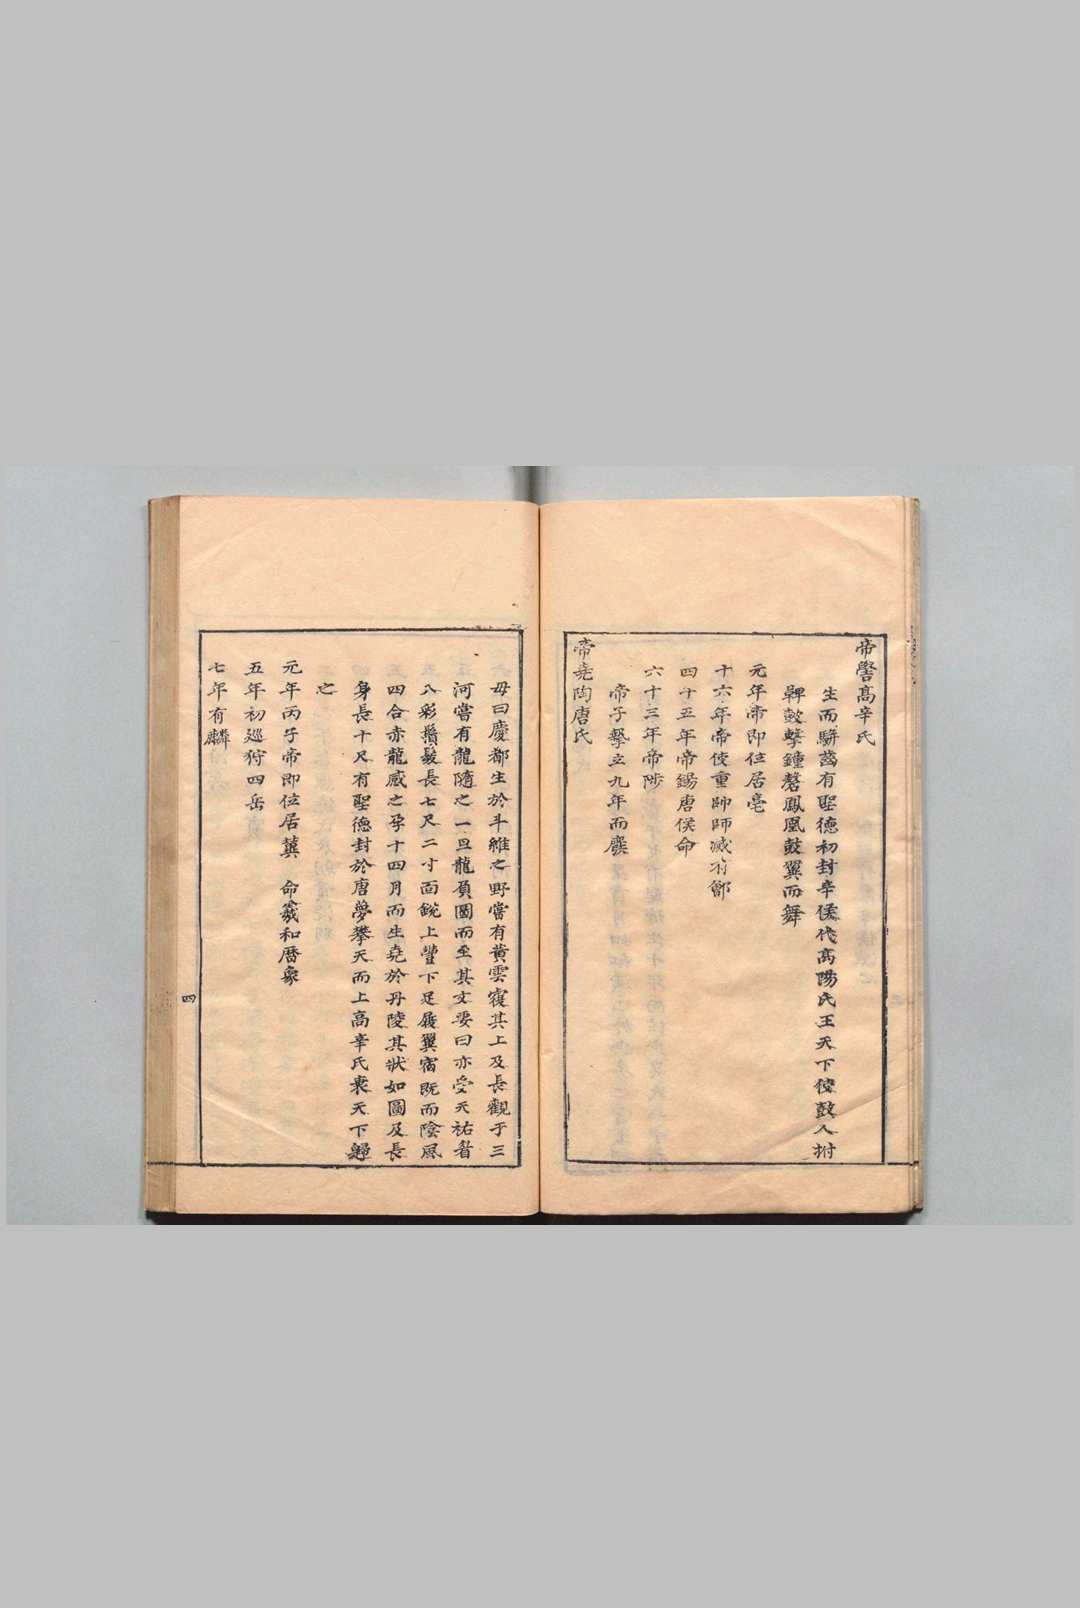 帝嚳高辛氏
生而騈齒有聖德初封辛侯代高陽氏王天下使鼓人拊
鞞鼓擊鐘磬鳳凰鼓翼而舞
元年帝即位居亳
十六年帝使重帥師滅有鄶
四十五年帝錫唐侯命
六十三年帝陟
帝子摯立九年而廢
帝堯陶唐氏
母曰慶都生於斗維之野嘗有黃雲覆其上及長觀于三
河嘗有龍隨之一旦龍負圖而至其文要曰亦受天祐眉
八彩鬚髮長七尺二寸面銳上豐下足履翼宿既而陰風
四合赤龍感之孕十四月而生堯於丹陵其狀如圖及長
身長十尺有聖德封於唐夢攀天而上高辛氏衰天下歸
之
元年丙子帝即位居冀 命羲和曆象
五年初巡狩四岳
七年有麟
四